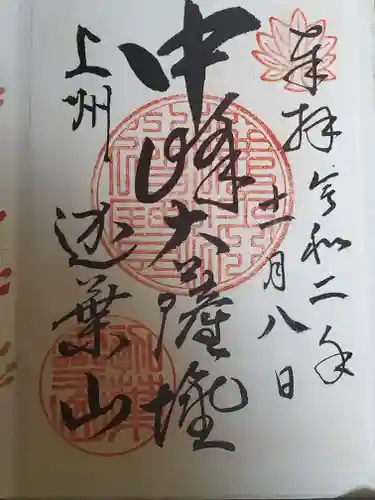 奉拝
令和二年
十一月八日
中峰大薩埵
上州
迦葉山